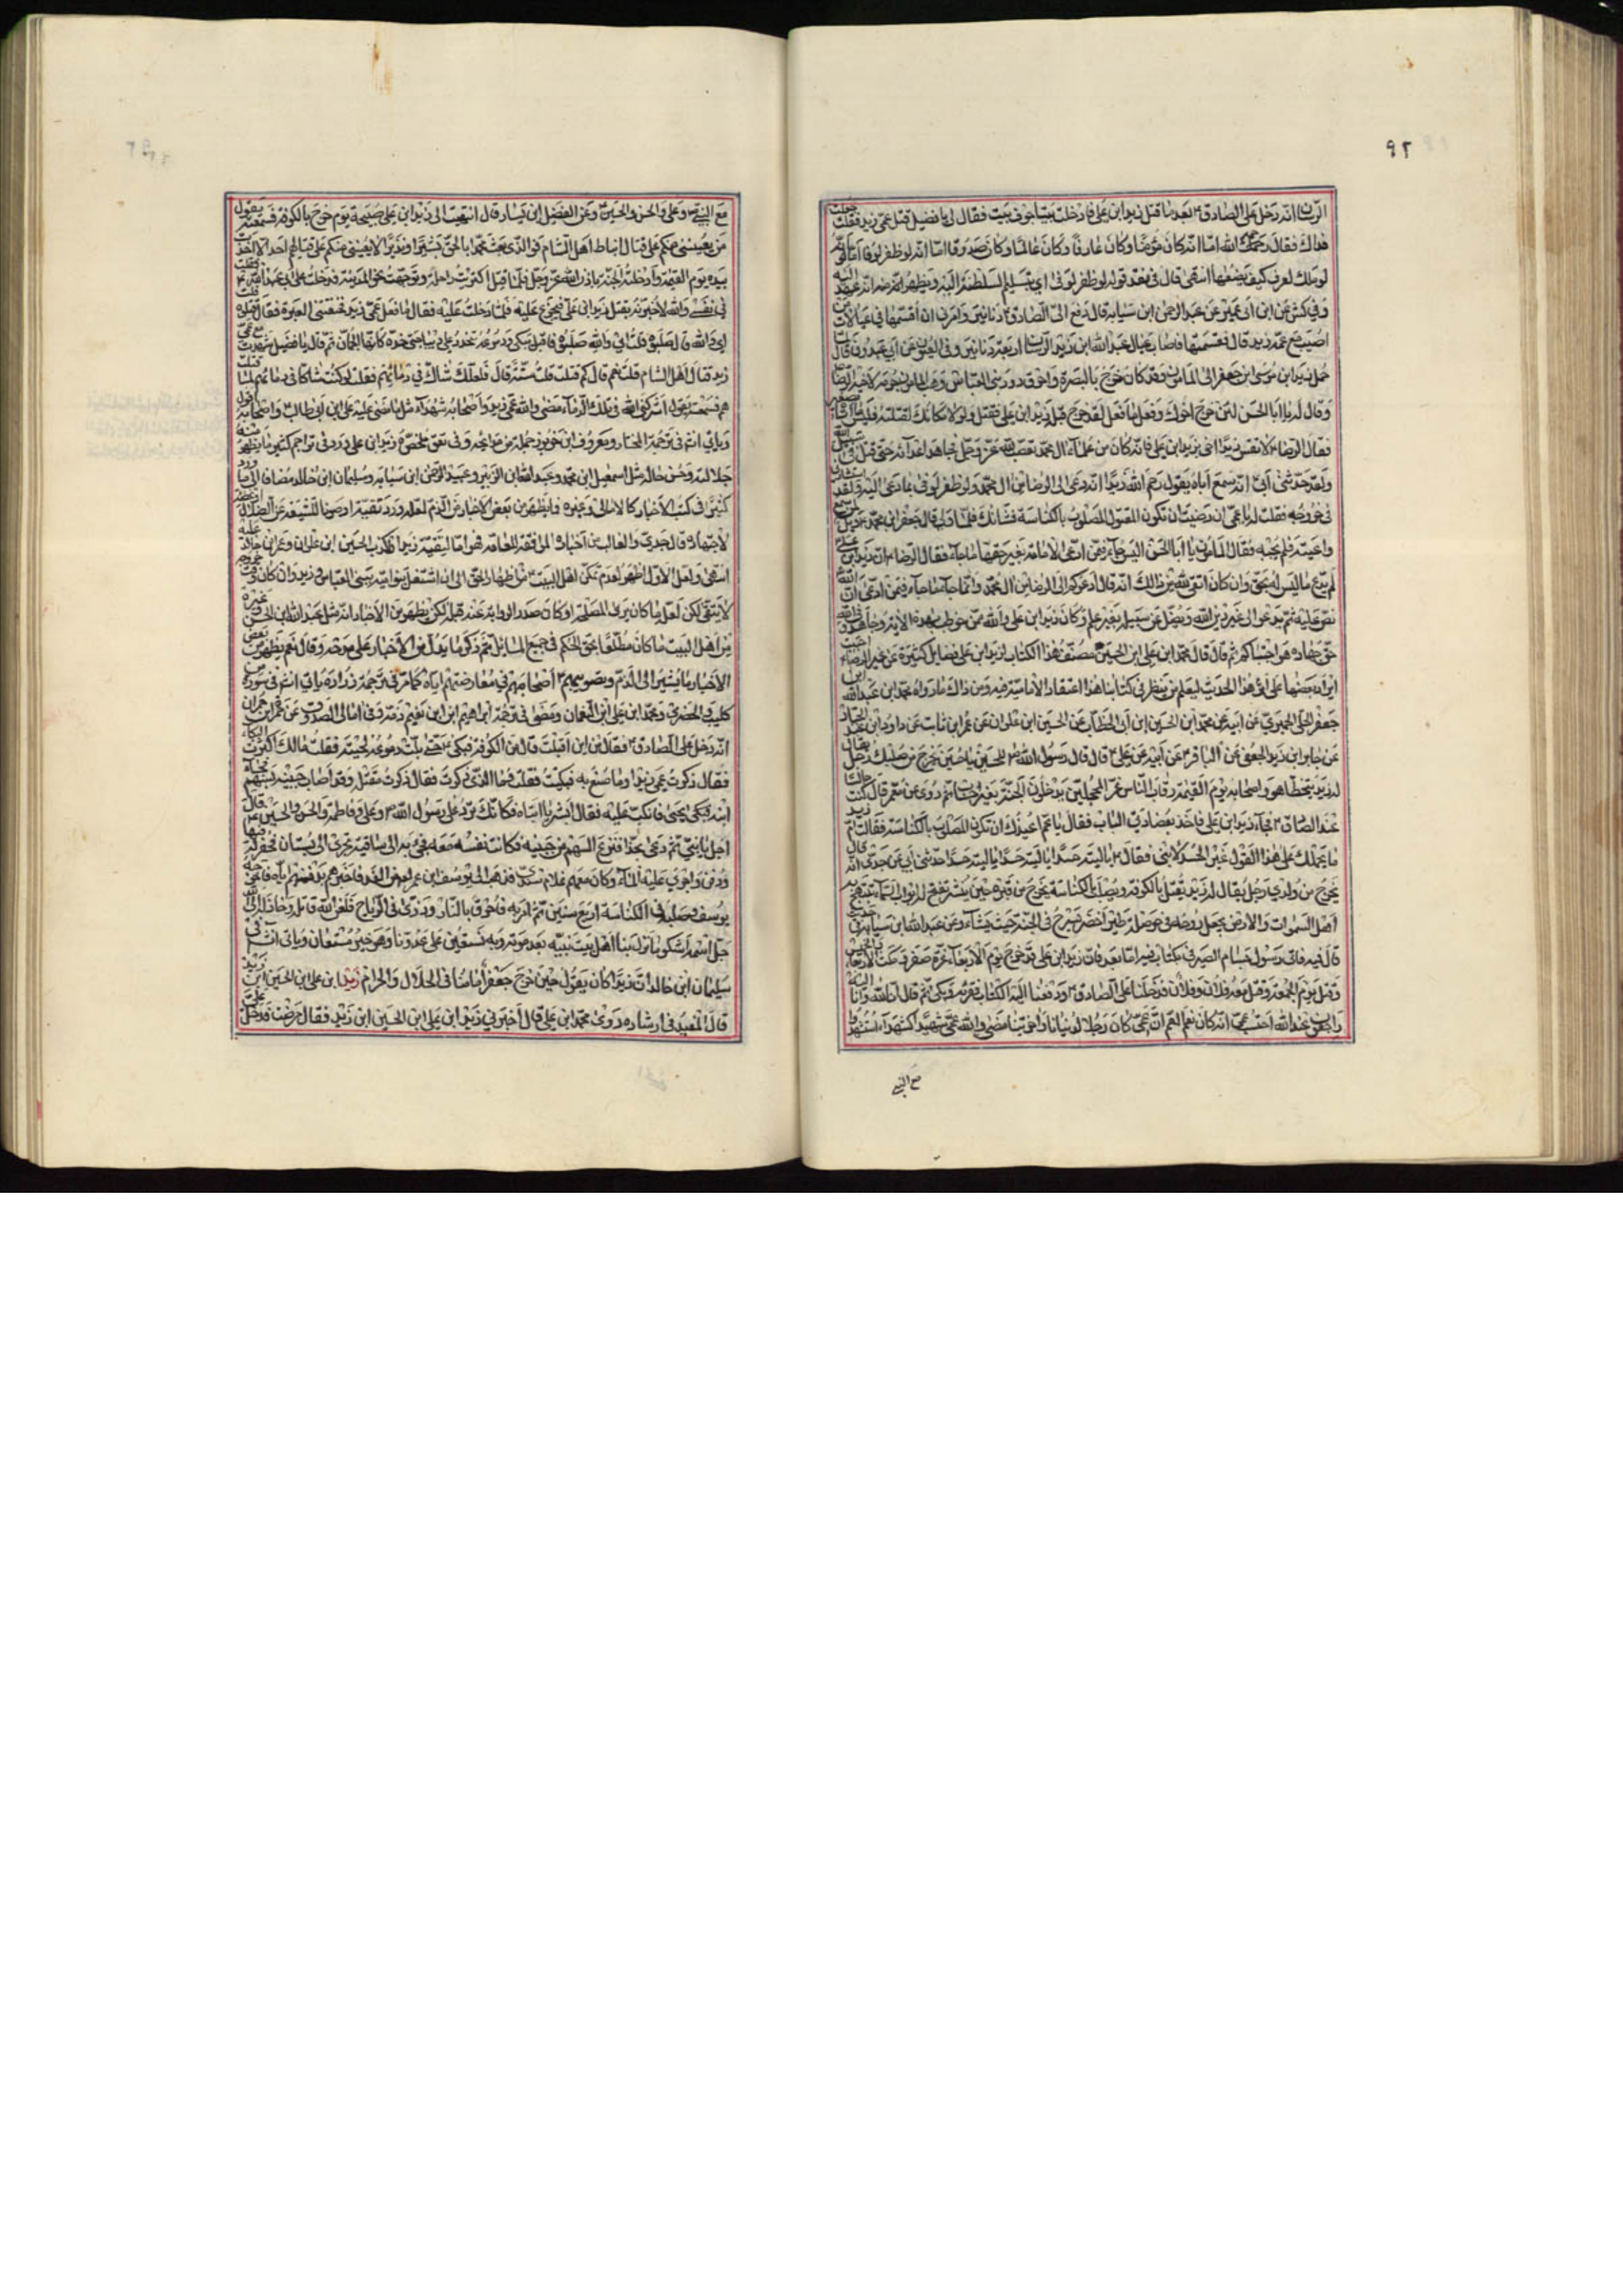 ٩٢
الرسان انه دخل على الصادق ع بعد ما قتل زيد ابن علي فادخلت بيتا جوف بيت فقال لي يا فضيل قتل عمي زيد فقلت جعلت
فداك فقال رحمه الله اما انه كان مؤمنا وكان عارفا وكان عالما وكان صدوقا اما انه لو ظفر لوفا اما انه
لو ملك لعرف كيف يضعها انتهى قال في نقد قوله لو ظفر لوفى اي بتسليم السلطنة اليه ويظهر
وفي كش عن ابن ابي عمير عن عبد الرحمن ابن سيابه قال دفع الي الصادق ع دنانير وامرني ان اقسمها في عيالات من
اصيب مع عمه زيد قال فقسمتها فاصاب عيال عبد الله ابن زبير الرسان اربعة دنانير وفي العيون عن ابي عبدون قال لما
حمل زيد ابن موسى ابن جعفر الى المامون وقد كان خرج بالبصرة واحرق دور بني العباس وهب المامون جرمه لاخيه الرضا
وقال له يا ابا الحسن لئن خرج اخوك وفعل ما فعل لقد خرج قبله زيد ابن علي فقتل ولولا مكانك لقتلته فليس ما اتاه بصغير
فقال الرضا ع لا تقس زيدا اخي بزيد ابن علي فانه كان من علماء ال محمد غضب لله عز وجل فجاهد اعداءه حتى قتل في سبيل الله
ولقد حدثني ابي انه سمع اباه يقول رحم الله زيدا انه دعى الى الرضا من ال محمد ولو ظفر لوفى بما دعى اليه ولقد استشارني
في خروجه فقلت له يا عمي ان رضيت ان تكون المقتول المصلوب بالكناسة فشانك فلما ولى قال جعفر ابن محمد ع ويل لمن سمع
واعيته فلم يجبه فقال المامون يا ابا الحسن اليس جاء فيمن ادعى الامامة بغير حقها ما جاء فقال الرضا ع ان زيد ابن علي
لم يدع ما ليس له بحق وان كان اتقى لله من ذالك انه قال ادعوكم الى الرضا من ال محمد وانما جاء ما جاء فيمن ادعى ان الله
نص عليه ثم يدعو الى غير دين الله ويضل عن سبيله بغير علم وكان زيد ابن علي والله ممن خوطب بهذه الاية وجاهدوا في الله
حق جهاده هو اجتباكم ثم قال قال محمد ابن علي ابن الحسين مصنف هذا الكتاب لزيد ابن علي فضايل كثيرة عن غير الرضا احببت
ايراد بعضها على اثر هذا الحديث ليعلم من ينظر في كتابنا هذا اعتقاد الامامية فيه ومن ذالك ما رواه محمد ابن عبد الله ابن
جعفر الحميري عن ابيه عن محمد ابن الحسين ابن ابي الخطاب عن الحسين ابن علوان عن عمر ابن ثابت عن داود ابن عبد الجبار
عن جابر ابن يزيد الجعفي عن الباقر ع عن ابيه عن علي ع قال قال رسول الله ص للحسين يا حسين يخرج من صلبك رجل يقال
له زيد يتخطا هو واصحابه يوم القيمة رقاب الناس غرا محجلين يدخلون الجنة بغير حساب ثم روى عن معمر قال كنت جالسا
عند الصادق ع فجاء زيد ابن علي فاخذ بعضادتي الباب فقال يا عم اعيذك ان تكون المصلوب بالكناسة فقالت ام زيد
ما يحملك على هذا القول غير الحسد لابني فقال ع يا ليته حسدا يا ليته حسدا يا ليته حسدا حدثني ابي عن جدي انه قال
يخرج من ولدي رجل يقال له زيد يقتل بالكوفه ويصلب بالكناسة يخرج من قبره حين ينشر تفتح له ابواب السماء يبتهج به
اهل السموات والارض يجعل روحه في حوصلة طير اخضر يسرح في الجنة حيث يشاء وعن عبد الله ابن سيابة في حديث
قال فيه فاتى رسول بسام الصيرفي بكتاب فيه اما بعد فان زيد ابن علي قد خرج يوم الاربعاء غرة صفر فمكث الاربعاء والخميس
وقتل يوم الجمعة وقتل معه فلان وفلان فدخلنا على الصادق ع ودفعنا اليه الكتاب فقرئه فبكى ثم قال انا لله وانا اليه
راجعون عند الله احتسب عمي انه كان نعم العم ان عمي كان رجلا لدنيانا واخرتنا مضى والله عمي شهيدا كشهداء استشهدوا
مع النبي
مع النبي ص وعلي والحسن والحسين ع وعن الفضيل ابن يسار قال انتهيت الى زيد ابن علي صبيحة يوم خرج بالكوفة فسمعته يقول
من يعينني منكم على قتال انباط اهل الشام فوالذي بعث محمدا بالحق بشيرا ونذيرا لا يعينني منكم على قتالهم احد الا اخذت
بيده يوم القيمة وادخلته الجنة باذن الله عز وجل فلما قتل اكتريت راحلة وتوجهت نحو المدينة فدخلت على ابي عبد الله ع فقلت
في نفسي والله لاخبرنه بقتل زيد ابن علي فيجزع عليه فلما دخلت عليه فقال ما فعل عمي زيد فخنقتني العبرة فقال قتلوه قلت
اي والله قال صلبوه قلت اي والله صلبوه فاقبل يبكي ودموعه تنحدر على ديباجتي خده كانها الجمان ثم قال يا فضيل شهدت مع عمي
زيد قتال اهل الشام قلت نعم قال كم قتلت قلت ستة قال فلعلك شاك في دمائهم فقلت لو كنت شاكا في دمائهم لما قتلت
هم فسمعته يقول اشركني الله في تلك الدماء مضى والله عمي زيد واصحابه شهداء مثل ما مضى عليه علي ابن ابي طالب ع واصحابه اقول
وياتي انشم في ترجمة المختار ومعروف ابن خربوذ جملة من مدايحه وفي تعق ملخصه وزيد ابن علي ورد في تراجم كثير ما يظهر منه
جلالته وحسن حاله مثل اسمعيل ابن محمد وعبد الله ابن الزبير وعبد الرحمن ابن سيابه وسليمان ابن خالد مضافا الى ما ورد
كثيرا في كتب الاخبار كالامالي وغيره وما يظهر من بعض الاخبار من الذم لعله ورد تقية او صونا للشيعة عن الضلال
لاجتهاده قال جدي والغالب من اخباره الموافقة للعامة فهو اما لتقية زيد او لكذب الحسين ابن علوان وعمر ابن خالد عليه
انتهى ولعل الاول اظهر لعدم تمكن اهل البيت من اظهار الحق الى ان اشتغل بنو امية ببني العباس وزيد وان كان في خروجه
لا يتقي لكن لعل ما كان يرى المصلحة او كان صدر الرواية عنه قبله لكن يظهر من الاخبار انه مثل عبد الله ابن الحسن وغيره
من اهل البيت ما كان مطلعا بحق الحكم في جميع المسائل ثم ذكر ما يدل من الاخبار على مدحه وقال نعم يظهر من بعض
الاخبار ما يشير الى الذم وبصويبهم ع اصحابهم في معارضتهم اياه كما مر في ترجمة زرارة ياتي انشم في سورة من
كليب الحضرمي ومحمد ابن علي ابن النعمان ومضى في ترجمة ابراهيم ابن نعيم ذمه وفي امالي الصدوق عن حمزة ابن حمران
انه دخل على الصادق ع فقال من اين اقبلت قال من الكوفة فبكى ع حتى بلت دموعه لحيته فقلت مالك اكثرت البكاء
فقال ذكرت عمي زيدا وما صنع به فبكيت فقلت فما الذي ذكرت فقال ذكرت مقتله وقد اصاب جبينه سهم فجاء
ابنه يحيى فانكب عليه فقال ابشر يا ابتاه فكانك ترد على رسول الله ص وعلي وفاطمة والحسن والحسين ع قال
اجل يا بني ثم دعى بحداد فنزع السهم من جبينه فكانت نفسه معه فجيء به الى ساقية تجري الى بستان فحفر له فيها
ودفن واجري عليه الماء وكان معهم غلام سندي فذهب الى يوسف ابن عمر من الغد فاخبرهم بدفنهم اياه فاخرجه
يوسف وصلبه في الكناسة اربع سنين ثم امر به فاحرق بالنار وذري في الرياح فلعن الله قاتله وخاذله والى الله
جل اسمه اشكو ما نزل بنا اهل بيت نبيه بعد موته وبه نستعين على عدونا وهو خير مستعان وياتي انشم في
سليمان ابن خالد ان زيدا كان يقول حين خرج جعفر امامنا في الحلال والحرام زيد ابن علي ابن الحسين ابن زيد
قال المفيد في ارشاده روى محمد ابن علي قال اخبرني زيد ابن علي ابن الحسين ابن زيد فقال مرضت فدخل علي